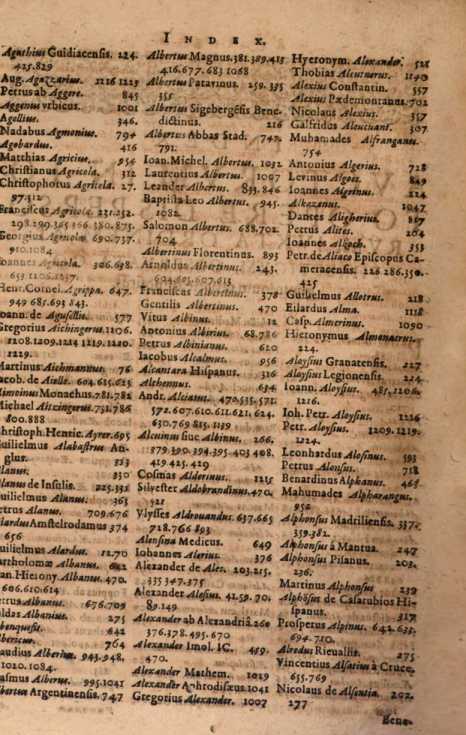 INDEX.
Agathius Guidiacensis. 224.
425.829
Aug. Agazzarius. 1116 1123
Petrus ab Aggere. 845
Aggenus vrbicus. 1001
Agellius. 346.
Nadabus Agmonius. 794
Agobardus. 416
Matthias Agricius. 954
Christianus Agricola. 312
Christophorus Agricola. 27.
97.312
Franciscus Agricola. 231.252.
298.299.365 366.380.875.
Georgius Agricola 690.737.
910.1084
Ioannes Agricola. 306.638.
653.1106.1237
Henr.Cornel.Agrippa. 647.
949 685.693 843.
Ioann. de Agusellis. 577
Gregorius Aichingerus.1106.
1108.1209.1214 1219.1220.
1229.
Martinus Aichmannus. 76
Iacob. de Aielle. 604.615.623
Aimoinus Monachus.781.782
Michael Aitzingerus.751.786
800.888
Christoph. Henric. Ayrer.695
Guilielmus Alabaster An-
glus. 323
Alanus. 330
Alanus de Insulis. 225.331
Guilielmus Alanus. 363
Petrus Alanus. 709.676
Alardus Amstelrodamus 374
656
Guilielmus Alardus. 12.70
Bartholomæ Albanus. 642
Ioan.Hierony. Albanus. 470.
606.610.614
Petrus Albanus. 676.709
Aldas Albanus. 275
Albenquesis. 642
Albericus. 764
Claudius Alberius. 943.948.
1020.1084.
Erasmus Alberus. 995.1041
Albertus Argentinensis. 747
Albertus Magnus.381.389.415
416.677. 683 1068
Albertus Patavinus. 259.395
355.
Albertus Sigebergēsis Bene-
dictinus. 216
Albertus Abbas Stad. 742.
791.
Ioan.Michel. Albertus. 1032
Laurentius Albertus. 1097
Leander Albertus. 833.846
Baptista Leo Albertus. 945.
1082.
Salomon Albertus. 688.702.
704
Albertinus Florentinus. 893
Arnoldus Albertinus. 243.
604.605.607.613
Franciscus Albertinus. 378
Gentilis Albertinus. 470
Vitus Albinus. 12
Antonius Albirius. 68.786
Petrus Albinianus. 620
Iacobus Alcalmus. 956
Alcantara Hispanus. 316
Alchemus. 634
Andr. Alciatus. 470.535.571.
572.607.610.611.621.624.
630.769 815.1139
Alcuinus siue Albinus. 266.
379.390.394.395 403 408.
419 425.429
Cosmas Alderinus. 1215
Silvester Aldobrandinus.470.
521
Vlysses Aldrouandus. 637.665
718.766 893
Alensina Medicus. 649
Iohannes Alerius. 376
Alexander de Ales. 203.215.
335 347.375
Alexander Alesius. 41.59.70.
89.149
Alexander ab Alexandriâ.260
376.378.495.670
Alexander Imol. IC. 459.
470.
Alexander Mathem. 1029
Alexander Aphrodisæus.1041
Gregorius Alexander. 1007
Hyeronym. Alexander. 528
Thobias Aleutnerus. 1140
Alexius Constantin. 557
Alexius Pædemontanus.702
Nicolaus Alexius. 357
Galfridus Aleucuant. 307
Muhamades Alfranganus.
754
Antonius Algerius. 728
Levinus Algoes. 849
Ioannes Algrinus. 224
Alkazanus. 1047
Dantes Aligherius. 867
Petrus Alites. 204
Ioannes Alkoch. 353
Petr. de Aliaco Episcopus Ca-
meracensis. 226 286.350.
425
Guilielmus Allotrus. 218
Eilardus Alma. 1118
Casp. Almerinus. 1090
Hieronymus Almonacirus.
224.
Aloysius Granatensis. 227
Aloysius Legionensis. 224
Ioann. Aloysius. 485.1206.
1216.
Ioh. Petr. Aloysius. 1226
Petr. Aloysius. 1209.1219.
1224.
Leonhardus Aloisinus. 593
Petrus Aloisius. 718
Benardinus Alphanus. 465
Mahumades Alpharangus.
952
Alphonsus Madriliensis. 337.
359.382.
Alphonsus à Mantua. 247
Alphonsus Pisanus. 203.
236.
Martinus Alphonsus 232
Alphōsus de Casarubios Hi-
spanus. 317
Prosperus Alpinus. 642.635.
694.710.
Alredus Rieuallis. 275
Vincentius Alsatius à Cruce.
655.769
Nicolaus de Alsentia. 202.
277
Bene-